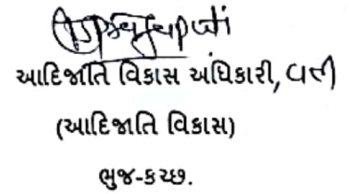 આદિજાતિ વિકાસ અધિકારી, વતી
(આદિજાતિ વિકાસ)
ભુજ-કચ્છ.